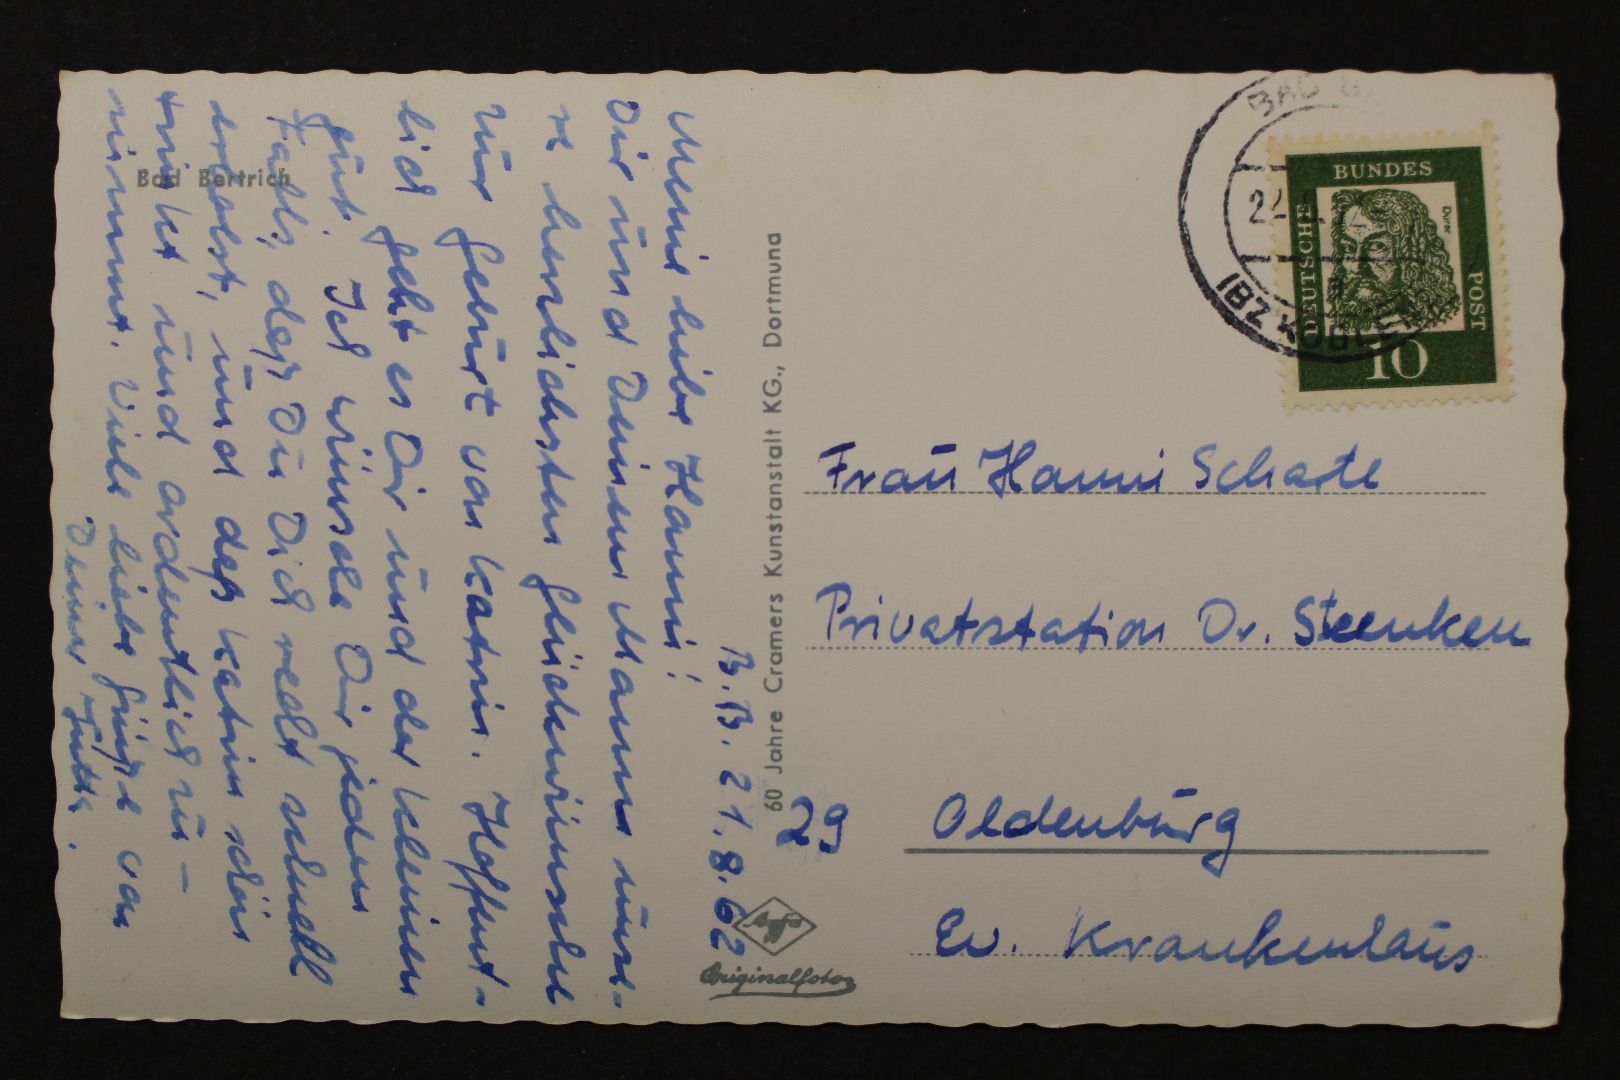 Bad Bertrich
B. B. 21. 8. 62
Meine liebe Hanni!
Dir und Deinem Manne unse-
re herzlichsten Glückwünsche
zur Geburt von Katrin. Hoffent-
lich geht es Dir und der Kleinen
gut. Ich wünsche Dir jeden
Falls, daß Du Dich recht schnell
erholst, und daß Katrin schön
trinkt und ordentlich zu-
nimmt. Viele liebe Grüße von
Deiner Jutta.
60 Jahre Cramers Kunstanstalt KG., Dortmund
Agfa
Originalfoto
BAD
(BZ KOBLENZ)
DEUTSCHE
BUNDES
POST
Dürer
10
Frau Hanni Schade
Privatstation Dr. Steenken
29 Oldenburg
Ev. Krankenhaus